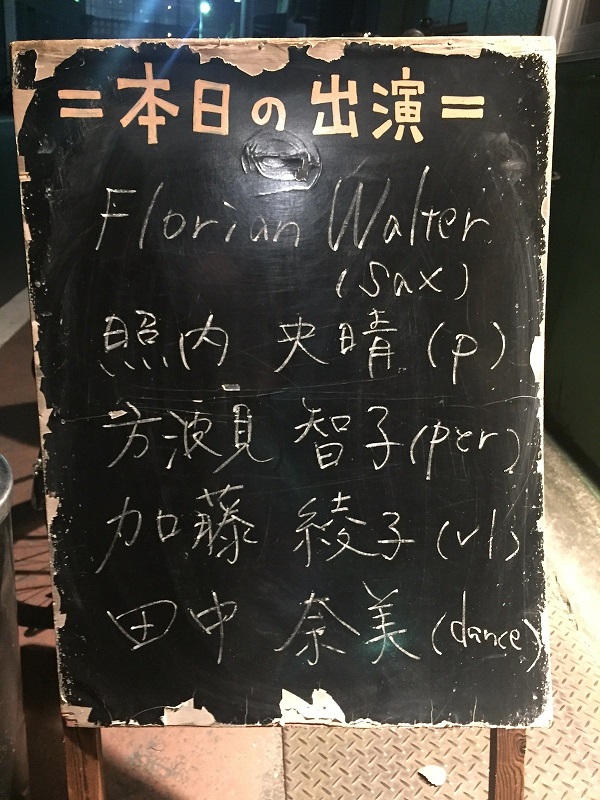 =本日の出演=
Florian Walter
(sax)
照内 央晴 (p)
方波見 智子 (per)
加藤 綾子 (vl)
田中 奈美 (dance)